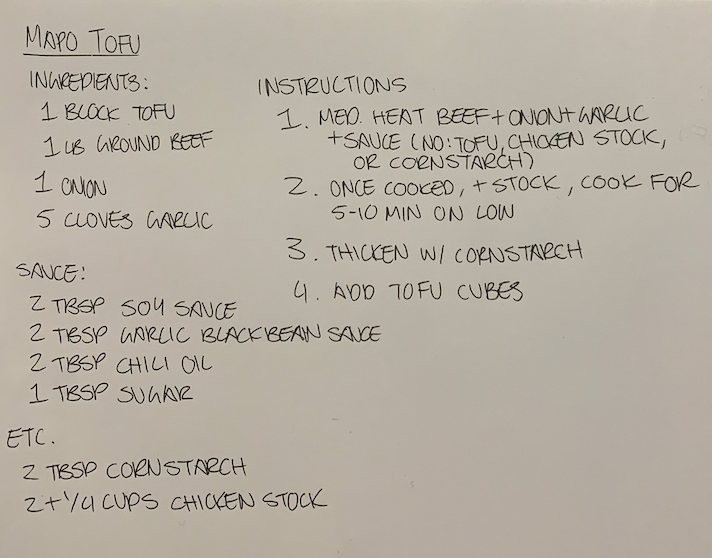 MAPO TOFU
INGREDIENTS:
1 BLOCK TOFU
1 LB GROUND BEEF
1 ONION
5 CLOVES GARLIC
SAUCE:
2 TBSP SOY SAUCE
2 TBSP GARLIC BLACKBEAN SAUCE
2 TBSP CHILI OIL
1 TBSP SUGAR
ETC.
2 TBSP CORNSTARCH
2 + 1/4 CUPS CHICKEN STOCK
INSTRUCTIONS
1. MED. HEAT BEEF + ONION + GARLIC
+ SAUCE (NO: TOFU, CHICKEN STOCK,
OR CORNSTARCH)
2. ONCE COOKED, + STOCK, COOK FOR
5-10 MIN ON LOW
3. THICKEN W/ CORNSTARCH
4. ADD TOFU CUBES